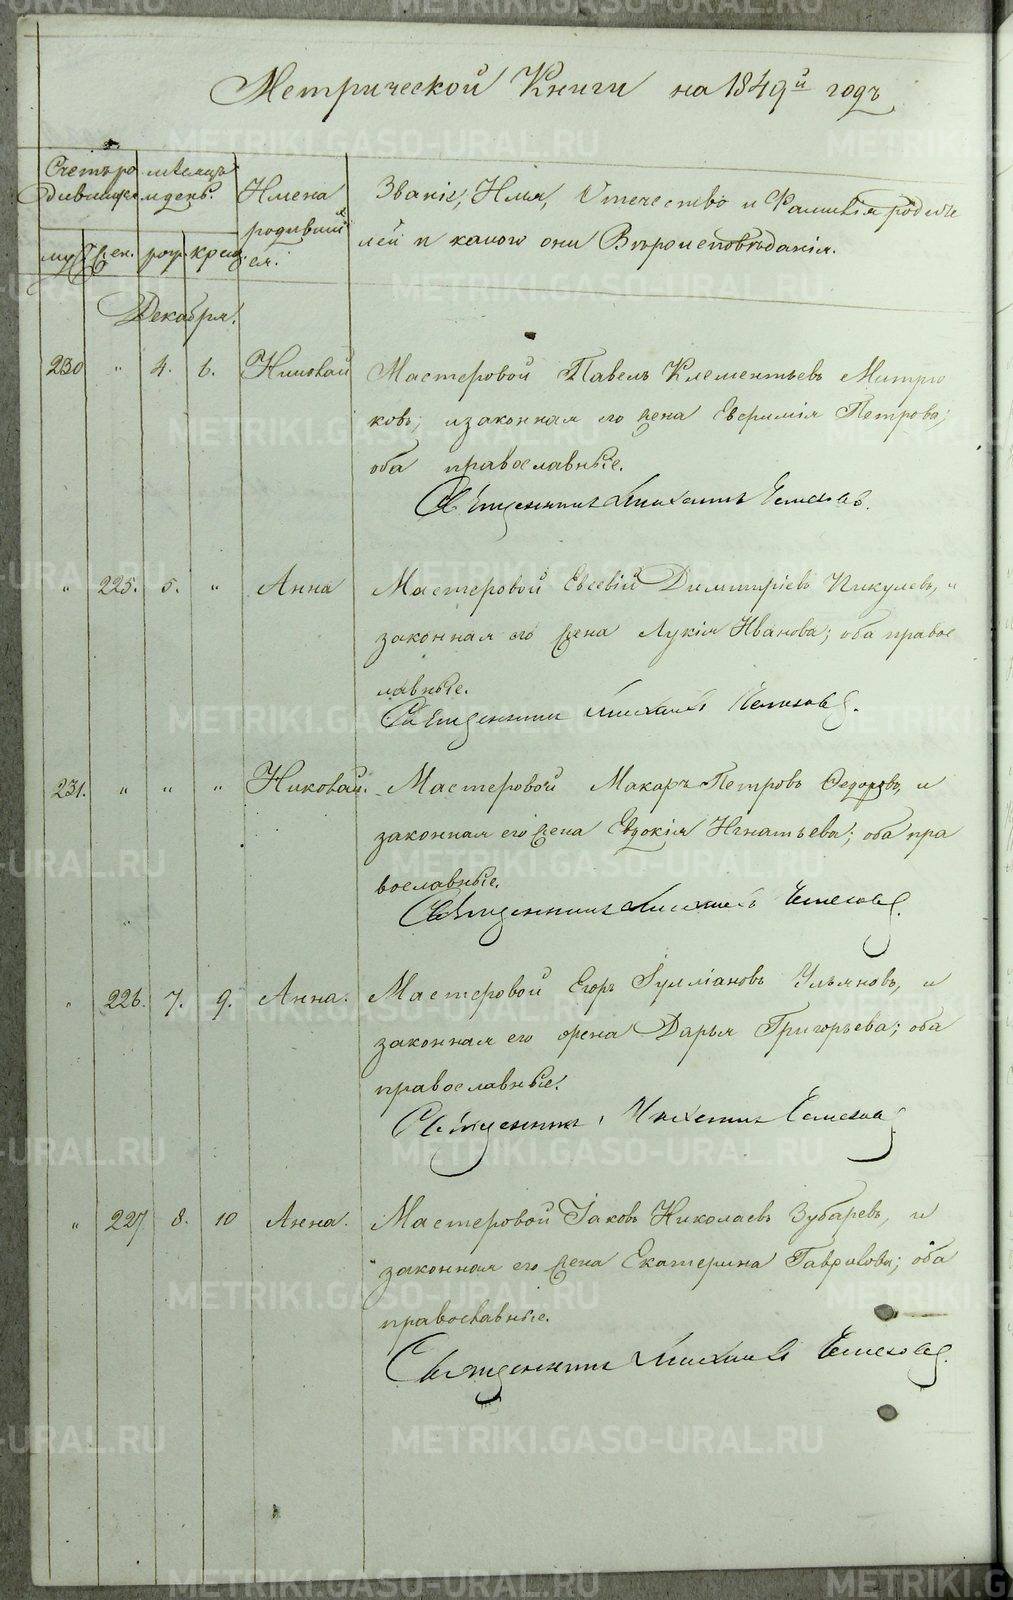 Метрической Книги на 1849й годъ
Счетъ ро
дившихся
мѣсяцъ
и день.
Имена
родивших
ся.
Званіе, Имя, Отечество и Фамилія родите
лей и какого они Вѣроисповѣданія.
муж. жен. рож. крещ.
Декабря.
230 " 4. 6. Николай Мастеровой Павелъ Клементьевъ Митрю
ковъ, и законная его жена Евфимія Петрова;
оба православные.
Священникъ Михаилъ
" 225. 5. " Анна Мастеровой Евсевій Димитріевъ Пикулевъ, и
законная его жена Лукія Иванова; оба правос
лавные.
Священникъ Михаилъ
231. " " " Николай. Мастеровой Макаръ Петровъ Ѳедоровъ, и
законная его жена Евдокія Игнатьева; оба пра
вославные.
Священникъ Михаилъ
" 226. 7. 9. Анна. Мастеровой Егоръ Іулліановъ Ульяновъ, и
законная его жена Дарья Григорьева; оба
православные.
Священникъ Михаилъ
" 227 8. 10 Анна. Мастеровой Іаковъ Николаевъ Зубаревъ, и
законная его жена Екатерина Гаврилова; оба
православные.
Священникъ Михаилъ
METRIKI.GASO-URAL.RU